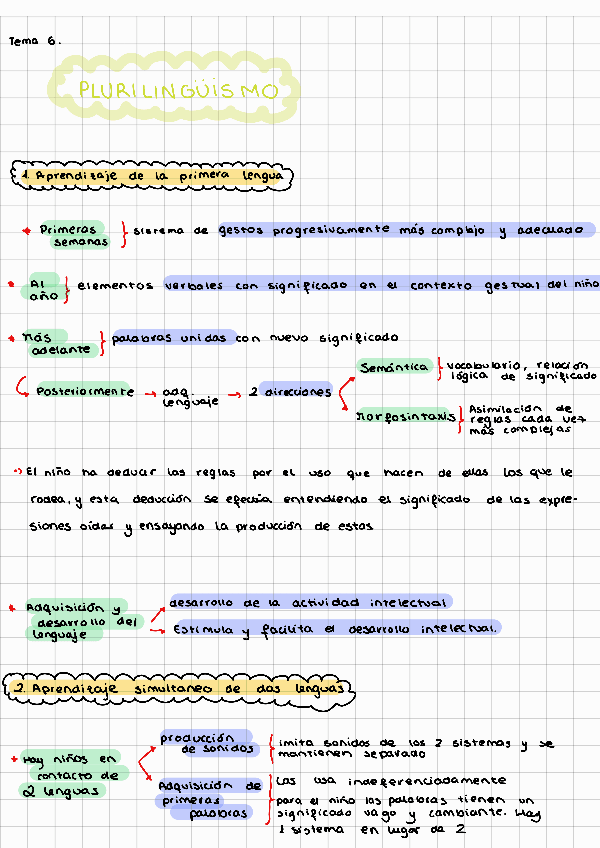 Tema 6.
PLURILINGÜISMO
1. Aprendizaje de la primera lengua
Primeras semanas } sistema de gestos progresivamente más complejo y adecuado
Al año } elementos verbales con significado en el contexto gestual del niño
Más adelante } palabras unidas con nuevo significado
Posteriormente → adq. lenguaje → 2 direcciones
Semántica } vocabulario, relación lógica de significado
Morfosintaxis } Asimilación de reglas cada vez más complejas
→ El niño ha deducir las reglas por el uso que hacen de ellas los que le
rodea, y esta deducción se efectúa entendiendo el significado de las expre-
siones oídas y ensayando la producción de estas
Adquisición y desarrollo del lenguaje
desarrollo de la actividad intelectual
Estimula y facilita el desarrollo intelectual.
2. Aprendizaje simultaneo de dos lenguas
Hay niños en contacto de 2 lenguas
producción de sonidos
imita sonidos de los 2 sistemas y se
mantienen separado
Adquisición de primeras palabras
Las usa indeferenciadamente
para el niño las palabras tienen un
significado vago y cambiante. Hay
1 sistema en lugar de 2